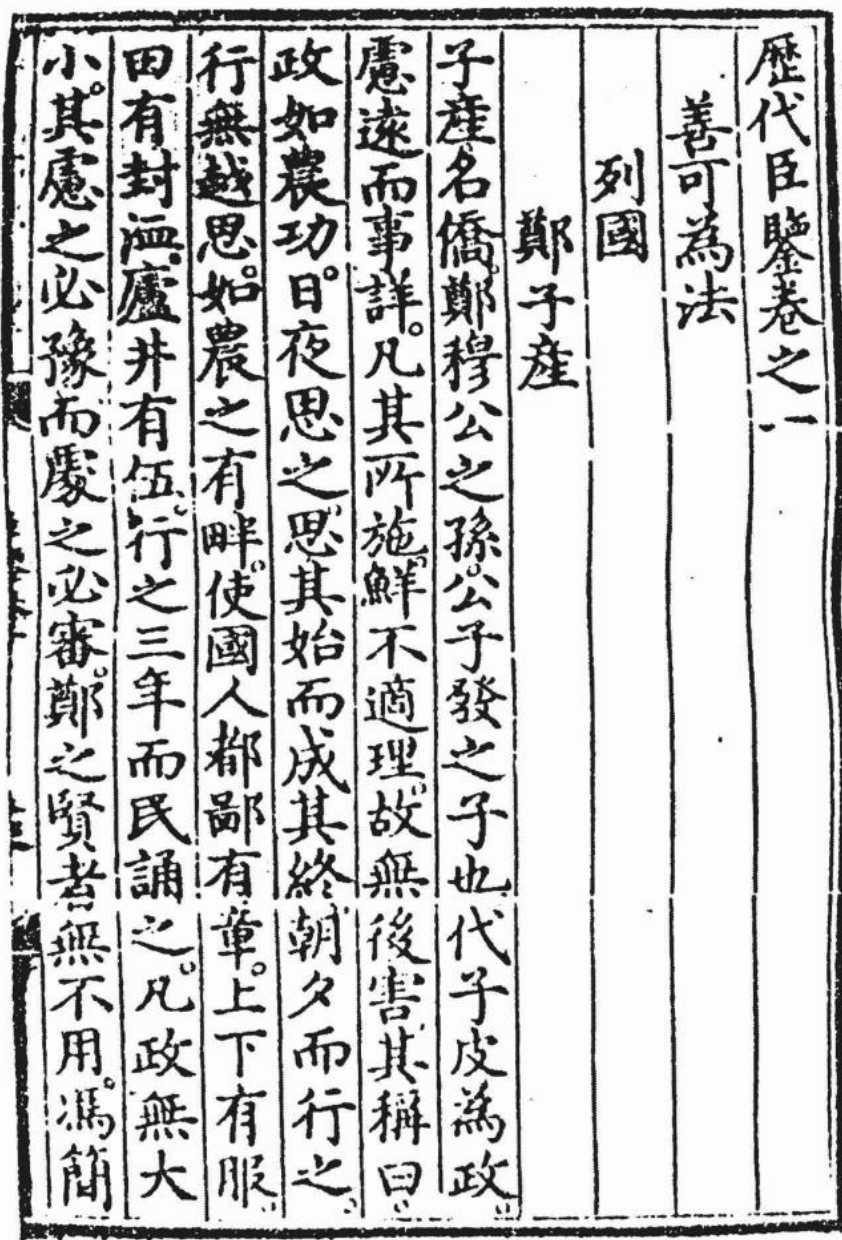 歷代臣鑒卷之一
善可為法
列國
鄭子產
子產名僑。鄭穆公之孫。公子發之子也代子皮為政。
慮遠而事詳。凡其所施。鮮不適理。故無後害。其稱曰。
政如農功。日夜思之。思其始而成其終。朝夕而行之。
行無越思。如農之有畔。使國人都鄙有章。上下有服。
田有封洫。廬井有伍。行之三年而民誦之。凡政無大
小。其慮之必豫而處之必審。鄭之賢者無不用。馮簡